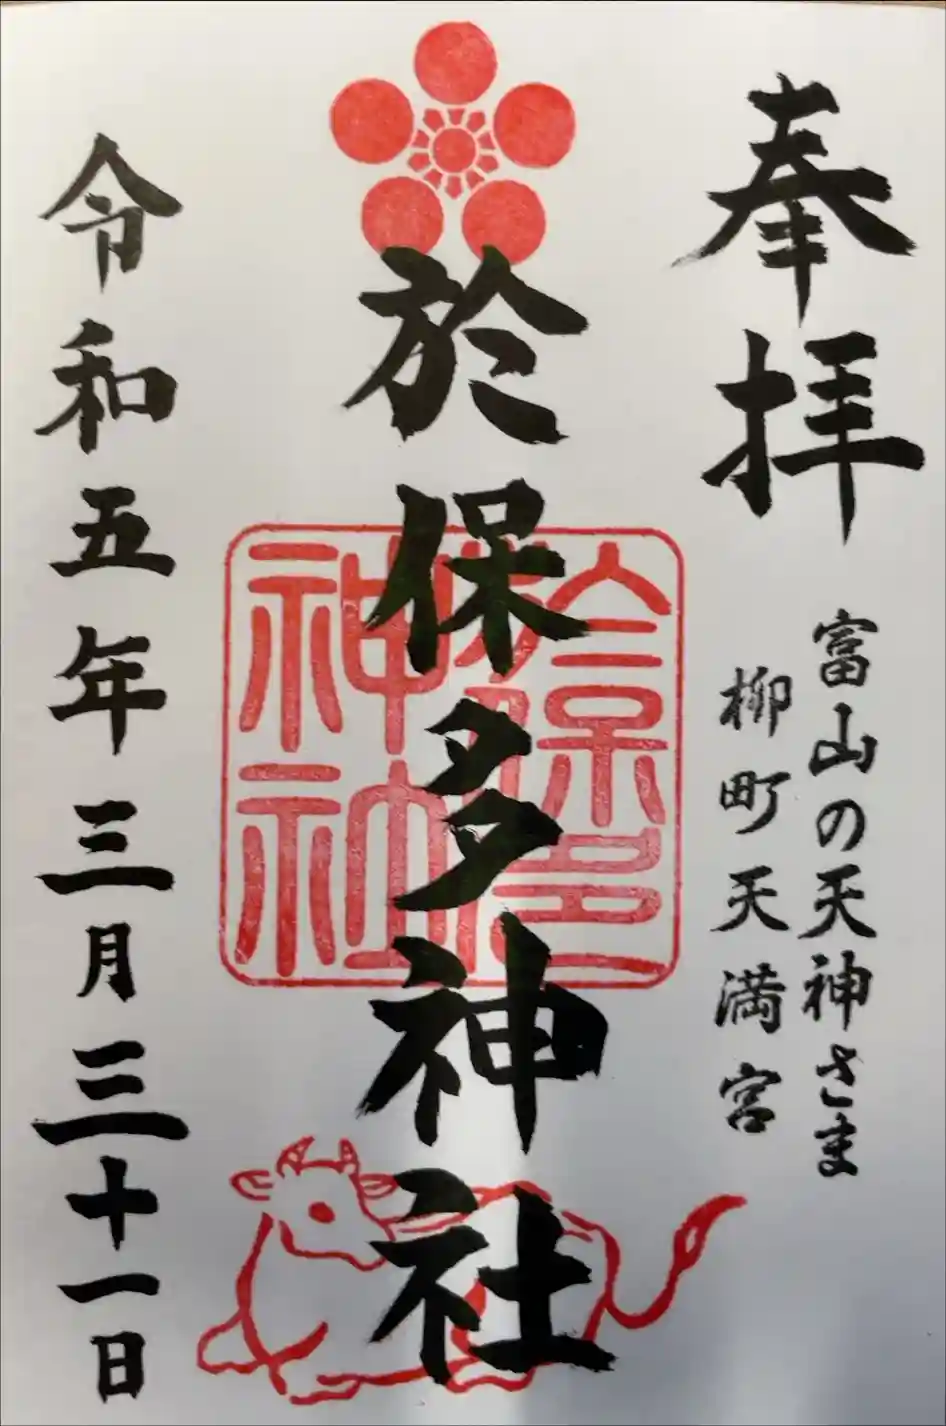 奉拝
富山の天神さま
柳町天満宮
於保多神社
於保多
神社
令和五年三月三十一日